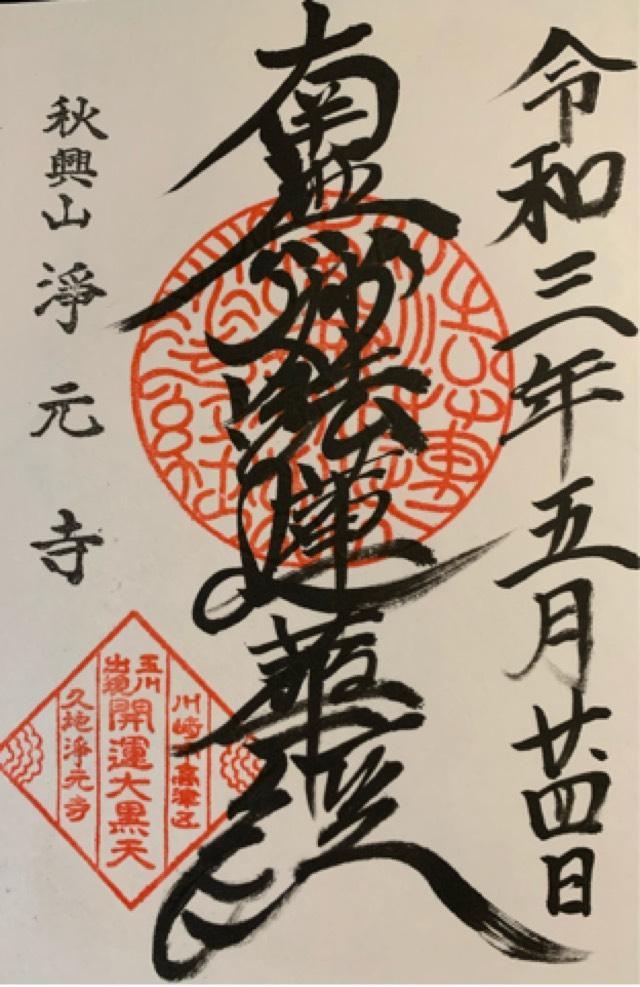 令和三年五月廿四日
南無妙法蓮華経
秋興山淨元寺
川崎市高津区
玉川出現
開運大黒天
久地淨元寺